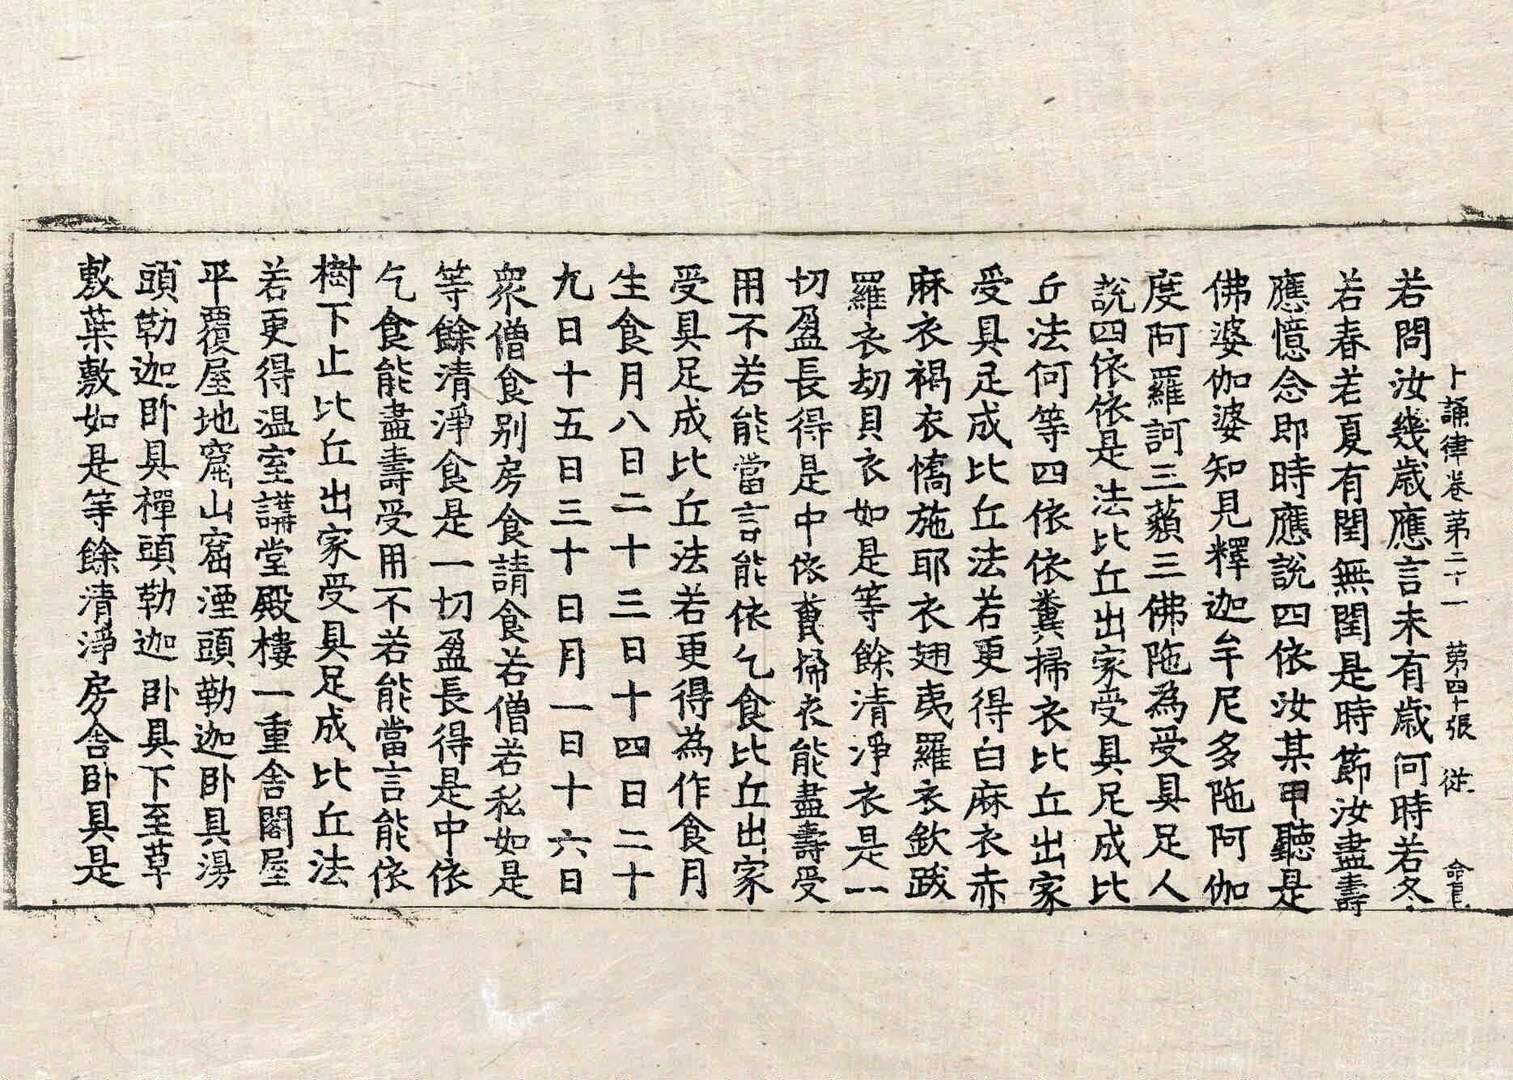 卜誦律卷第二十一　第四十張　從
若問汝幾歲應言未有歲何時若冬
若春若夏有閏無閏是時節汝盡壽
應憶念即時應說四依汝某甲聽是
佛婆伽婆知見釋迦牟尼多陁阿伽
度阿羅訶三藐三佛陁為受具足人
說四依依是法比丘出家受具足成比
丘法何等四依依糞掃衣比丘出家
受具足成比丘法若更得白麻衣赤
麻衣褐衣憍施耶衣翅夷羅衣欽跋
羅衣劫貝衣如是等餘清淨衣是一
切盈長得是中依糞掃衣能盡壽受
用不若能當言能依乞食比丘出家
受具足成比丘法若更得為作食月
生食月八日二十三日十四日二十
九日十五日三十日月一日十六日
眾僧食別房食請食若僧若私如是
等餘清淨食是一切盈長得是中依
乞食能盡壽受用不若能當言能依
樹下止比丘出家受具足成比丘法
若更得温室講堂殿樓一重舍閣屋
平覆屋地窟山窟湮頭勒迦卧具漫
頭勒迦卧具禪頭勒迦卧具下至草
敷葉敷如是等餘清淨房舍卧具是